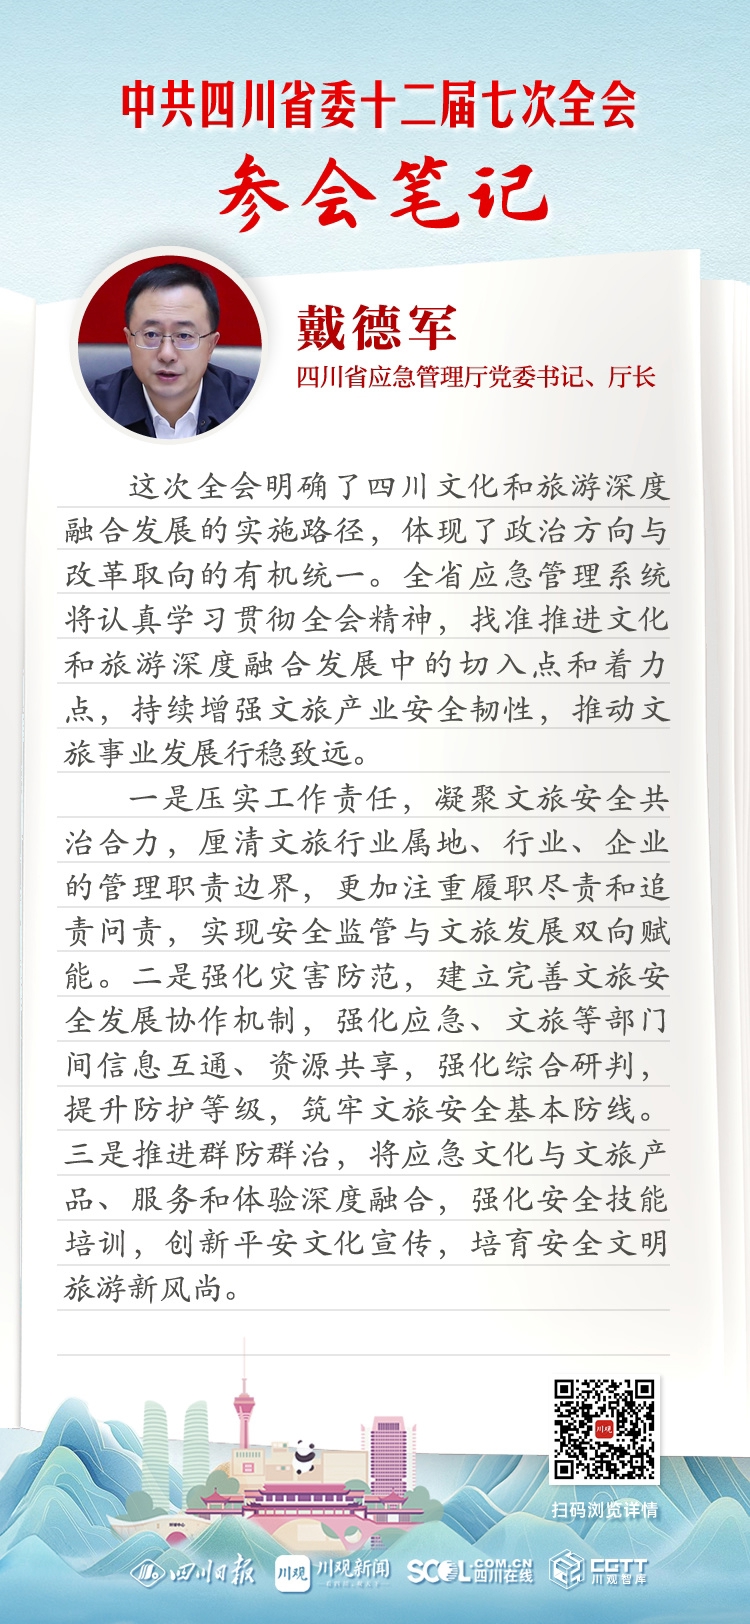 中共四川省委十二届七次全会
参会笔记
戴德军
四川省应急管理厅党委书记、厅长
这次全会明确了四川文化和旅游深度
融合发展的实施路径，体现了政治方向与
改革取向的有机统一。全省应急管理系统
将认真学习贯彻全会精神，找准推进文化
和旅游深度融合发展中的切入点和着力
点，持续增强文旅产业安全韧性，推动文
旅事业发展行稳致远。
一是压实工作责任，凝聚文旅安全共
治合力，厘清文旅行业属地、行业、企业
的管理职责边界，更加注重履职尽责和追
责问责，实现安全监管与文旅发展双向赋
能。二是强化灾害防范，建立完善文旅安
全发展协作机制，强化应急、文旅等部门
间信息互通、资源共享，强化综合研判，
提升防护等级，筑牢文旅安全基本防线。
三是推进群防群治，将应急文化与文旅产
品、服务和体验深度融合，强化安全技能
培训，创新平安文化宣传，培育安全文明
旅游新风尚。
川观
扫码浏览详情
四川日报
川观 川观新闻
SCOL .COM.CN 四川在线
CGTT 川观智库